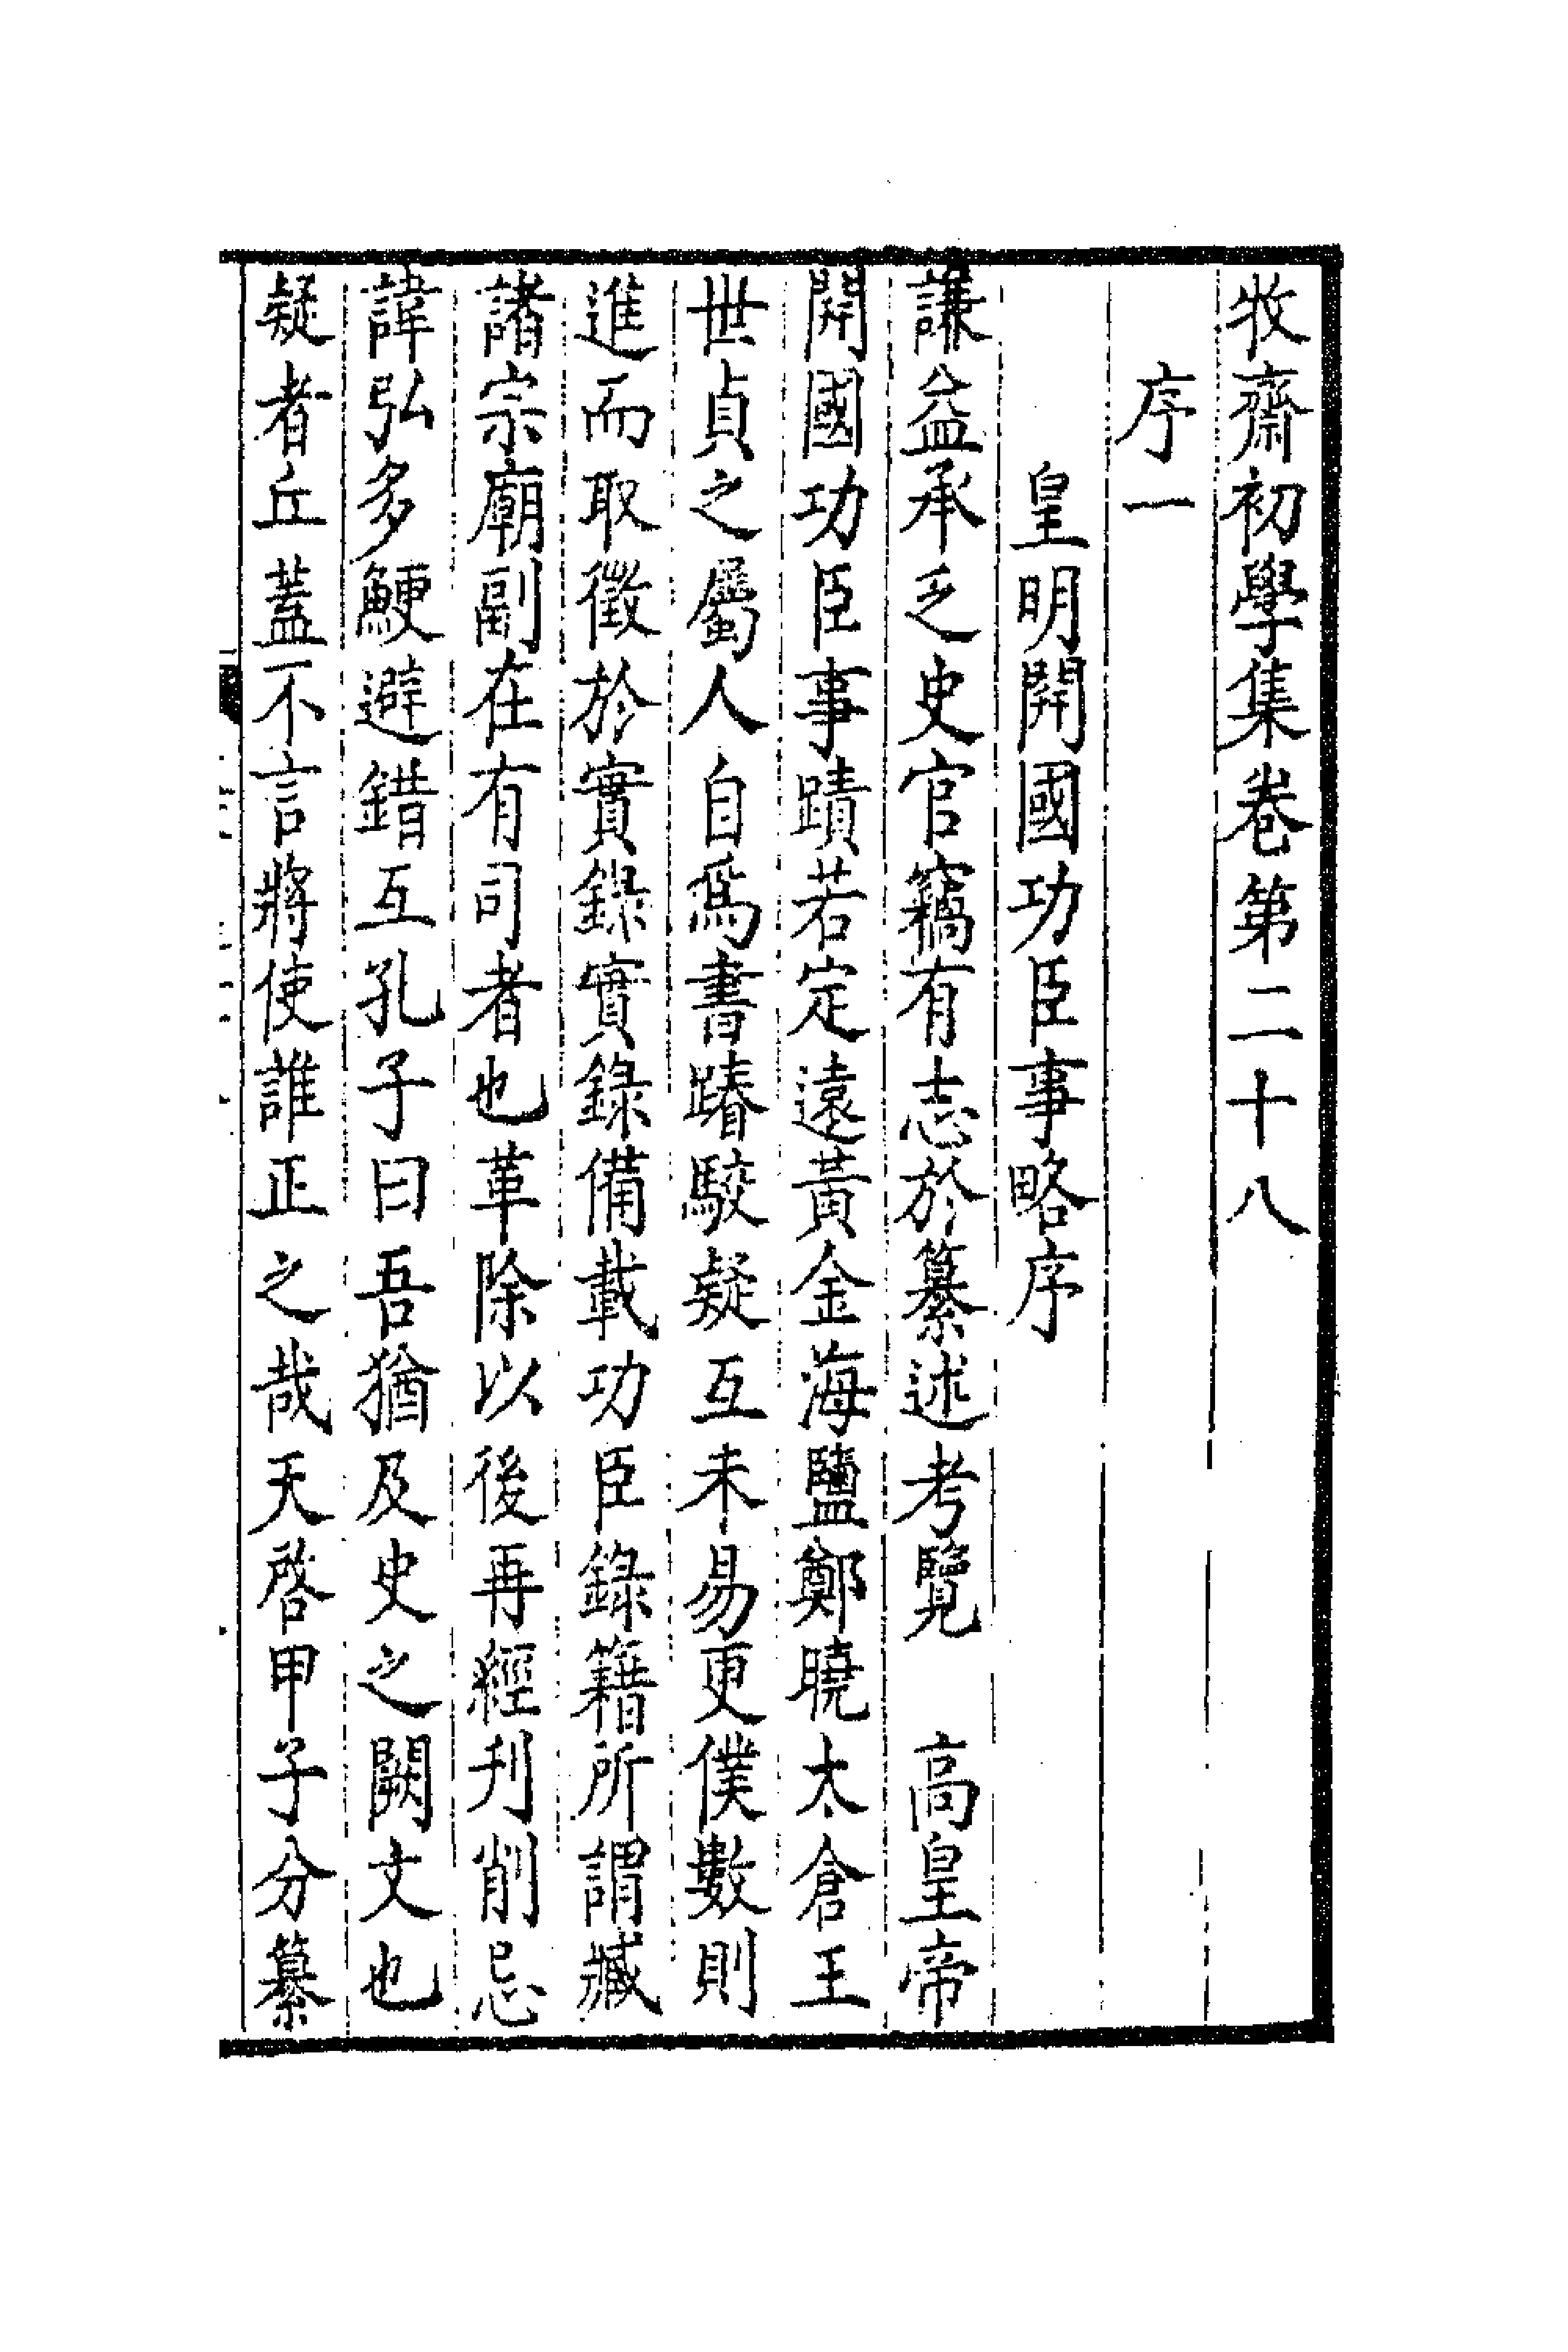 牧齋初學集卷第二十八
序一
皇明開國功臣事略序
謙益承乏史官竊有志於纂述考覽　高皇帝
開國功臣事蹟若定遠黃金海鹽鄭曉太倉王
世貞之屬人自爲書踳駮疑互未易更僕數則
進而取徵於實錄實錄備載功臣錄籍所謂臧
諸宗廟副在有司者也革除以後再經刋削忌
諱弘多鯁避錯互孔子曰吾猶及史之闕文也
疑者丘蓋不言將使誰正之哉天啓甲子分纂